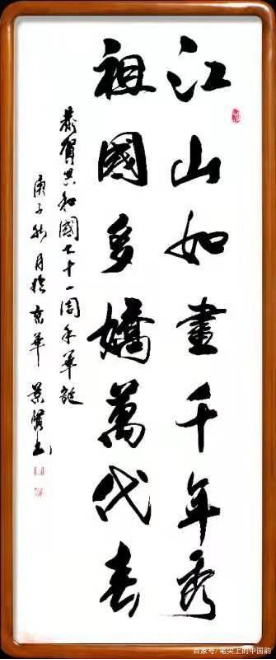 江山如畫千年秀
祖國多嬌萬代春
恭賀共和國七十一周年華誕
庚子秋月於京華 景賢书
百家号/笔尖上的中国韵